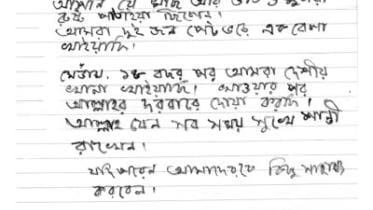 আপনি যে মাছ আর ভাত ও
কষ্ট পাঠাইয়া ছিলেন।
আমরা দুই জন পেট ভরে এক বেলা
খাইয়াছি।
মেডাম, ১৮ বছর পর আমরা দেশীয়
খানা খাইয়াছি। খাওয়ার পর
আল্লাহর দরবারে দোয়া করছি।
আল্লাহ যেন সব সময় সুখে শান্তি
রাখেন।
যদি পারেন আমাদেরকে কিছু সাহায্য
করবেন।